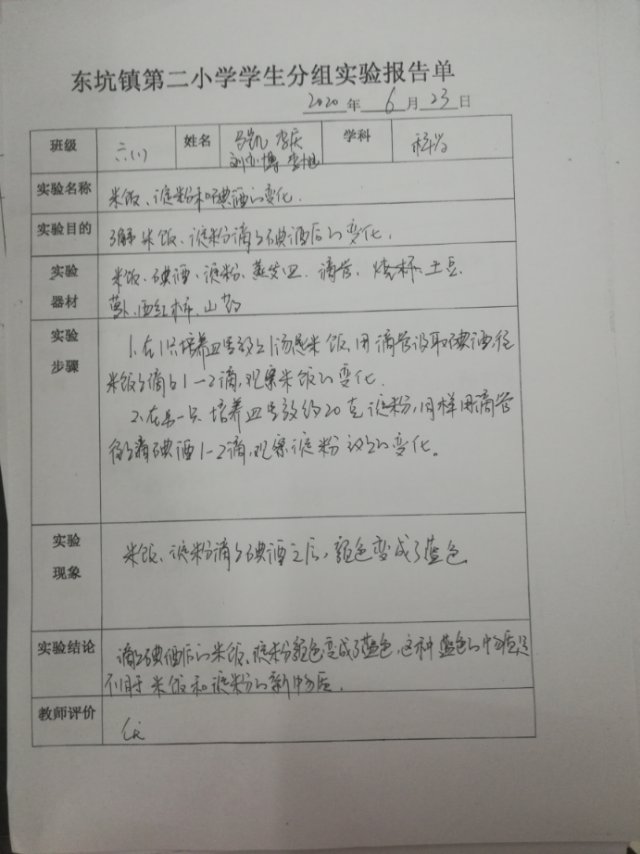 东坑镇第二小学学生分组实验报告单
2020 年 6 月 23 日
班级 六(1) 姓名 学科 科学
实验名称 米饭、淀粉和碘酒的变化.
实验目的 了解米饭、淀粉滴了碘酒后的变化.
实验 米饭、碘酒、淀粉、蒸发皿、滴管、烧杯、土豆、
器材 西红柿、山药
实验 1、在1只培养皿里放上1汤匙米饭,用滴管吸取碘酒,往
步骤 米饭上滴1-2滴,观察米饭的变化.
2、在另一只培养皿里放约20克淀粉,同样用滴管
碘酒1-2滴,观察淀粉的变化。
实验 米饭、淀粉滴了碘酒之后,颜色变成了蓝色
现象
实验结论 滴上碘酒后的米饭、淀粉颜色变成了蓝色,这种蓝色的物质是
不同于米饭和淀粉的新物质.
教师评价 优